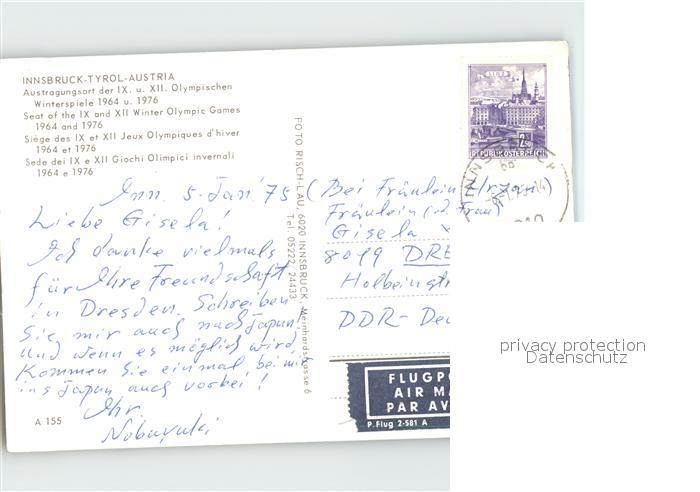 INNSBRUCK-TYROL-AUSTRIA
Austragungsort der IX. u. XII. Olympischen
Winterspiele 1964 u. 1976
Seat of the IX and XII Winter Olympic Games
1964 and 1976
Siège des IX et XII Jeux Olympiques d'hiver
1964 et 1976
Sede dei IX e XII Giochi Olimpici invernali
1964 e 1976
Inn. 5. Jan '75
Liebe Gisela!
Ich danke vielmals
für Ihre Freundschaft
in Dresden. Schreiben
Sie mir auch nach Japan.
Und wenn es möglich wird,
Kommen Sie einmal bei mir
ins Japan auch vorbei!
Ihr.
Nobuyuki
A 155
FOTO RISCH-LAU, 6020 INNSBRUCK, Meinhardstrasse 6
Tel. 05222 24433
LINZ
2 S
REPUBLIK ÖSTERREICH
INNSBRUCK
(Bei Fräulein
Fräulein (od. Frau)
Gisela
8019 DRE
Holbeinstr
DDR-Deu
FLUGPO
AIR MA
PAR AV
P. Flug 2-581 A
privacy protection
Datenschutz